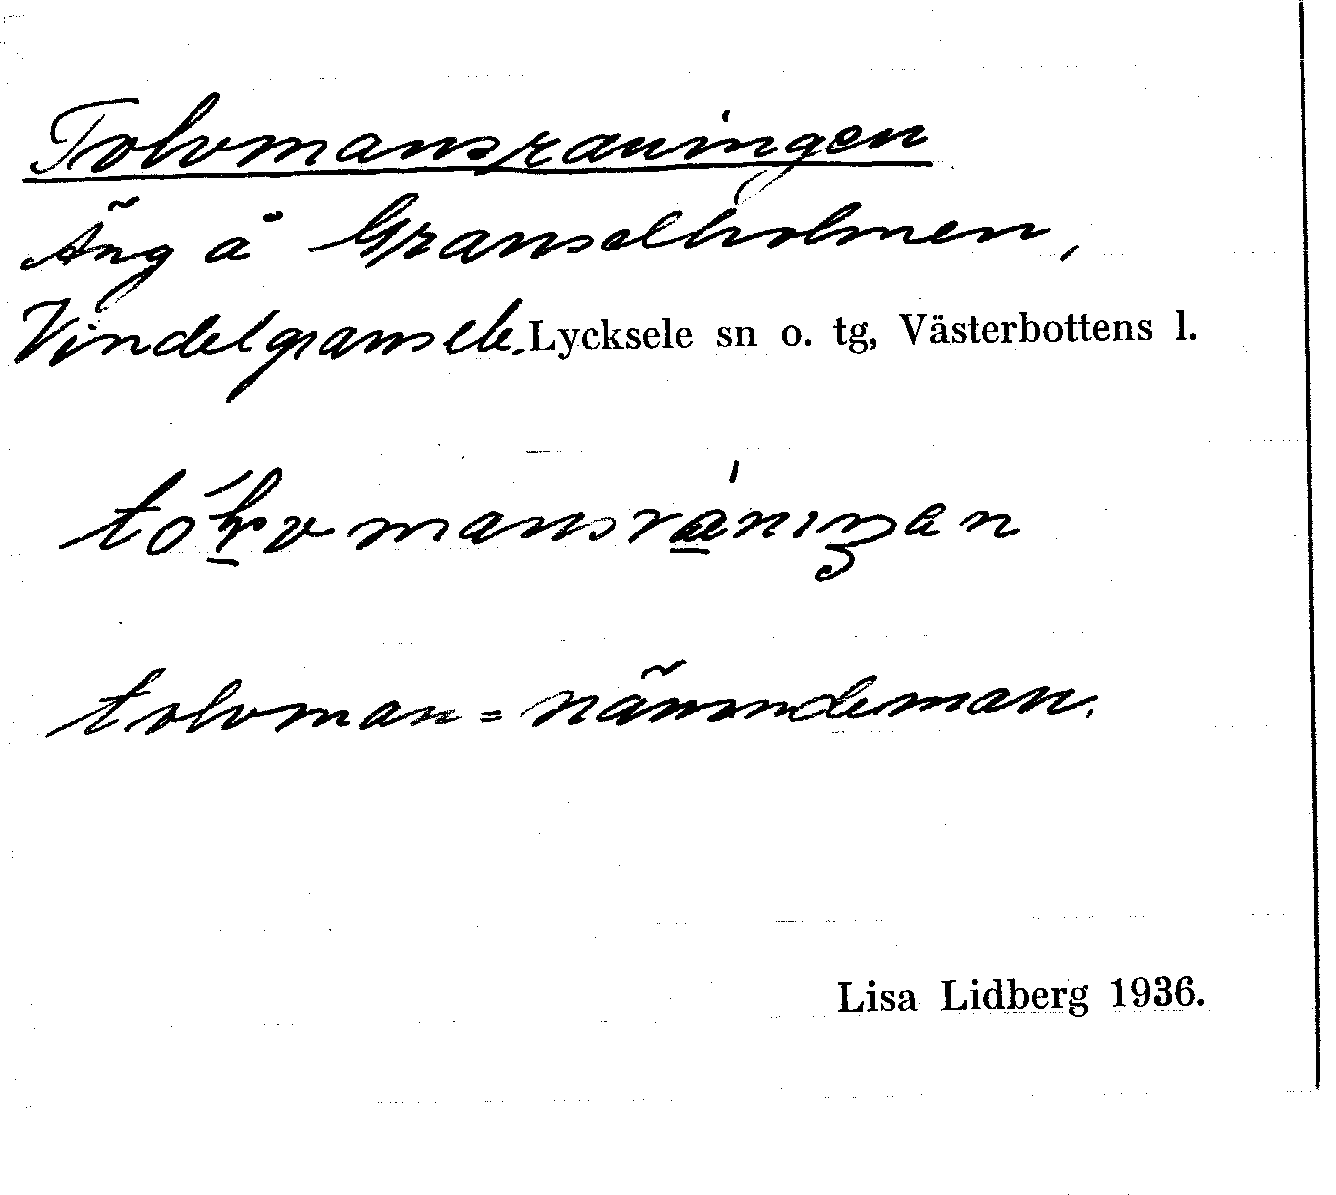 Tolvmansraningen
Äng å Granselholmen,
Vindelgransele. Lycksele sn o. tg, Västerbottens l.
tolvman = nämndeman.
Lisa Lidberg 1936.